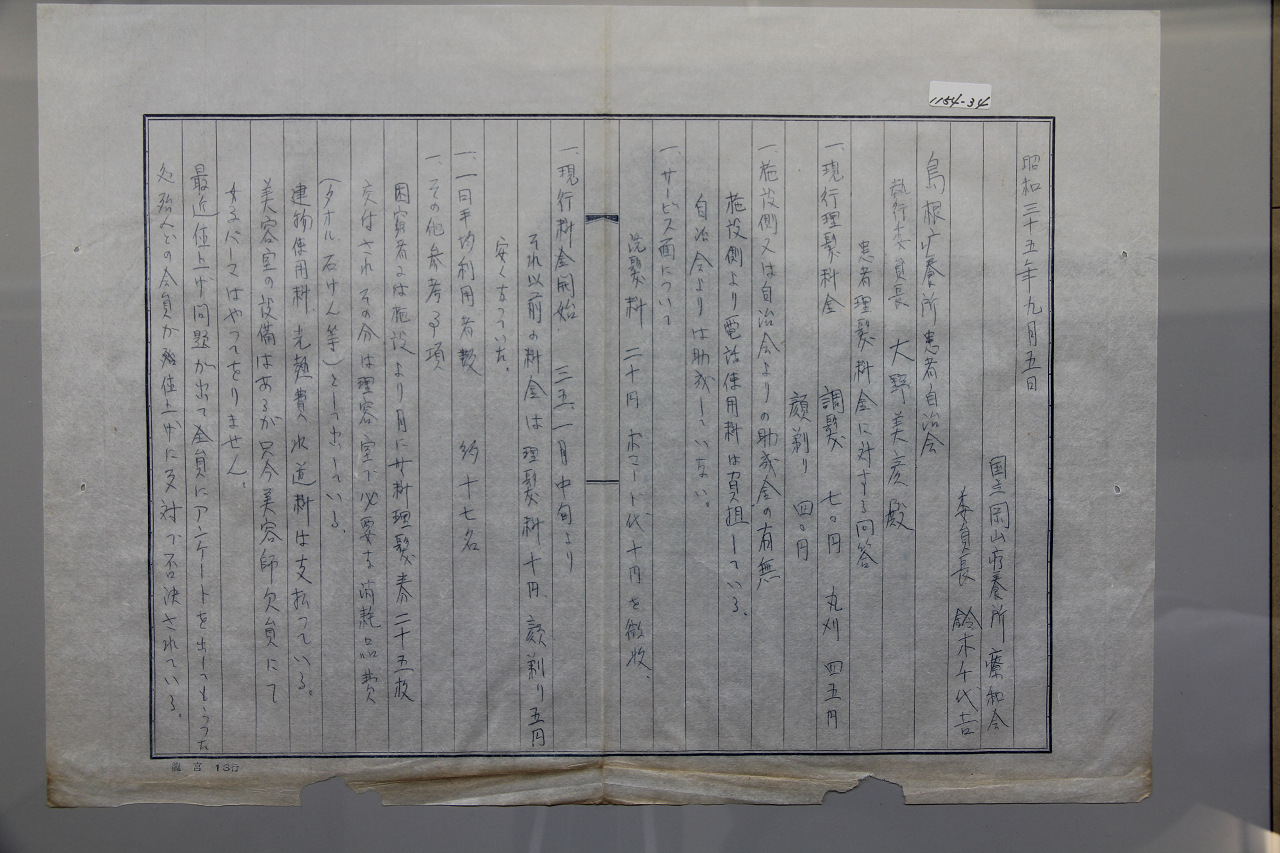 1154-34
昭和三十五年九月五日
国立岡山療養所 療和会
委員長 鈴木千代吉
島根療養所患者自治会
執行委員長 大野美彦殿
患者理髪料金に対する回答
一、現行理髪料金 調髪 七〇円 丸刈 四五円
顔剃り 四〇円
一、施設側又は自治会よりの助成金の有無
施設側より電話使用料は負担している。
自治会よりは助成していない。
一、サービス面について
洗髪料 二十円 ポマード代 十円を徴収、
一、現行料金開始 三五、一月中旬より
それ以前の料金は理髪料十円 顔剃り五円
安くなっていた。
一、一日平均利用者数 約十七名
一、その他参考事項
困窮者には施設より月に廿枚理髪券二十五枚
交付されその分は理容室で必要な消耗品費
(タオル、石けん等)として出している。
建物使用料、光熱費、水道料は支払っている。
美容室の設備はあるが只今美容師欠員にて
女子パーマはやってをりません。
最近値上げ問題が出て全員にアンケートを出してもらった
処殆んどの会員が値上げに反対で否決されている。
龍言 13行